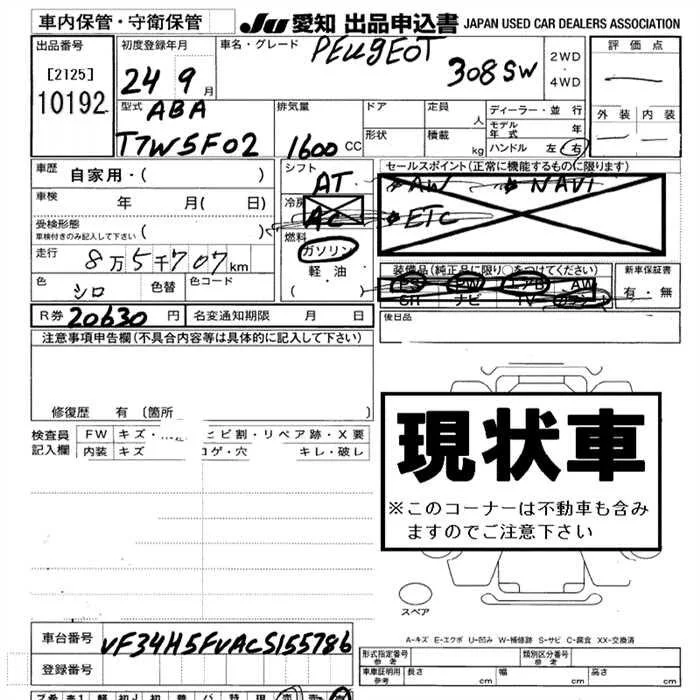 車内保管・守衛保管 JU 愛知 出品申込書 JAPAN USED CAR DEALERS ASSOCIATION
出品番号 初度登録年月 車名・グレード PEUGEOT 308SW 2WD ・ 4WD 評価点
[2125] 10192 24 9月 外装 内装
型式 ABA T7W5F02 排気量 1600 CC ドア 定員 人 ディーラー・並行
形状 積載 kg モデル年式 年
ハンドル 左 右
車歴 自家用・( ) シフト AT セールスポイント(正常に機能するものに限ります)
車検 年 月( 日) 冷房 AC AW NAVI
受検形態 車検付きのみ記入して下さい ( ) ETC
走行 8万5千707km 燃料 ガソリン 軽油 ( ・ )
色 シロ 色替 色コード
装備品(純正品に限り○をつけてください) 新車保証書
PS PW エアB AW 有・無
SR ナビ TV
R券 20630 円 名変通知期限 月 日 後日品
注意事項申告欄(不具合内容等は具体的に記入して下さい)
修復歴 有 〔箇所 〕
検査員記入欄 FW キズ・ ヒビ割・リペア跡・X要
内装 キズ コゲ・穴 キレ・破レ
現状車
※このコーナーは不動車も含み
ますのでご注意下さい
スペア
車台番号 VF34H5FVACS155786
A-キズ E-エクボ U-凹み W-補修跡 S-サビ C-腐食 XX-交換済
登録番号
形式指定番号 参考 類別区分番号 参考
車庫証明用 参考 長さ 幅 高さ